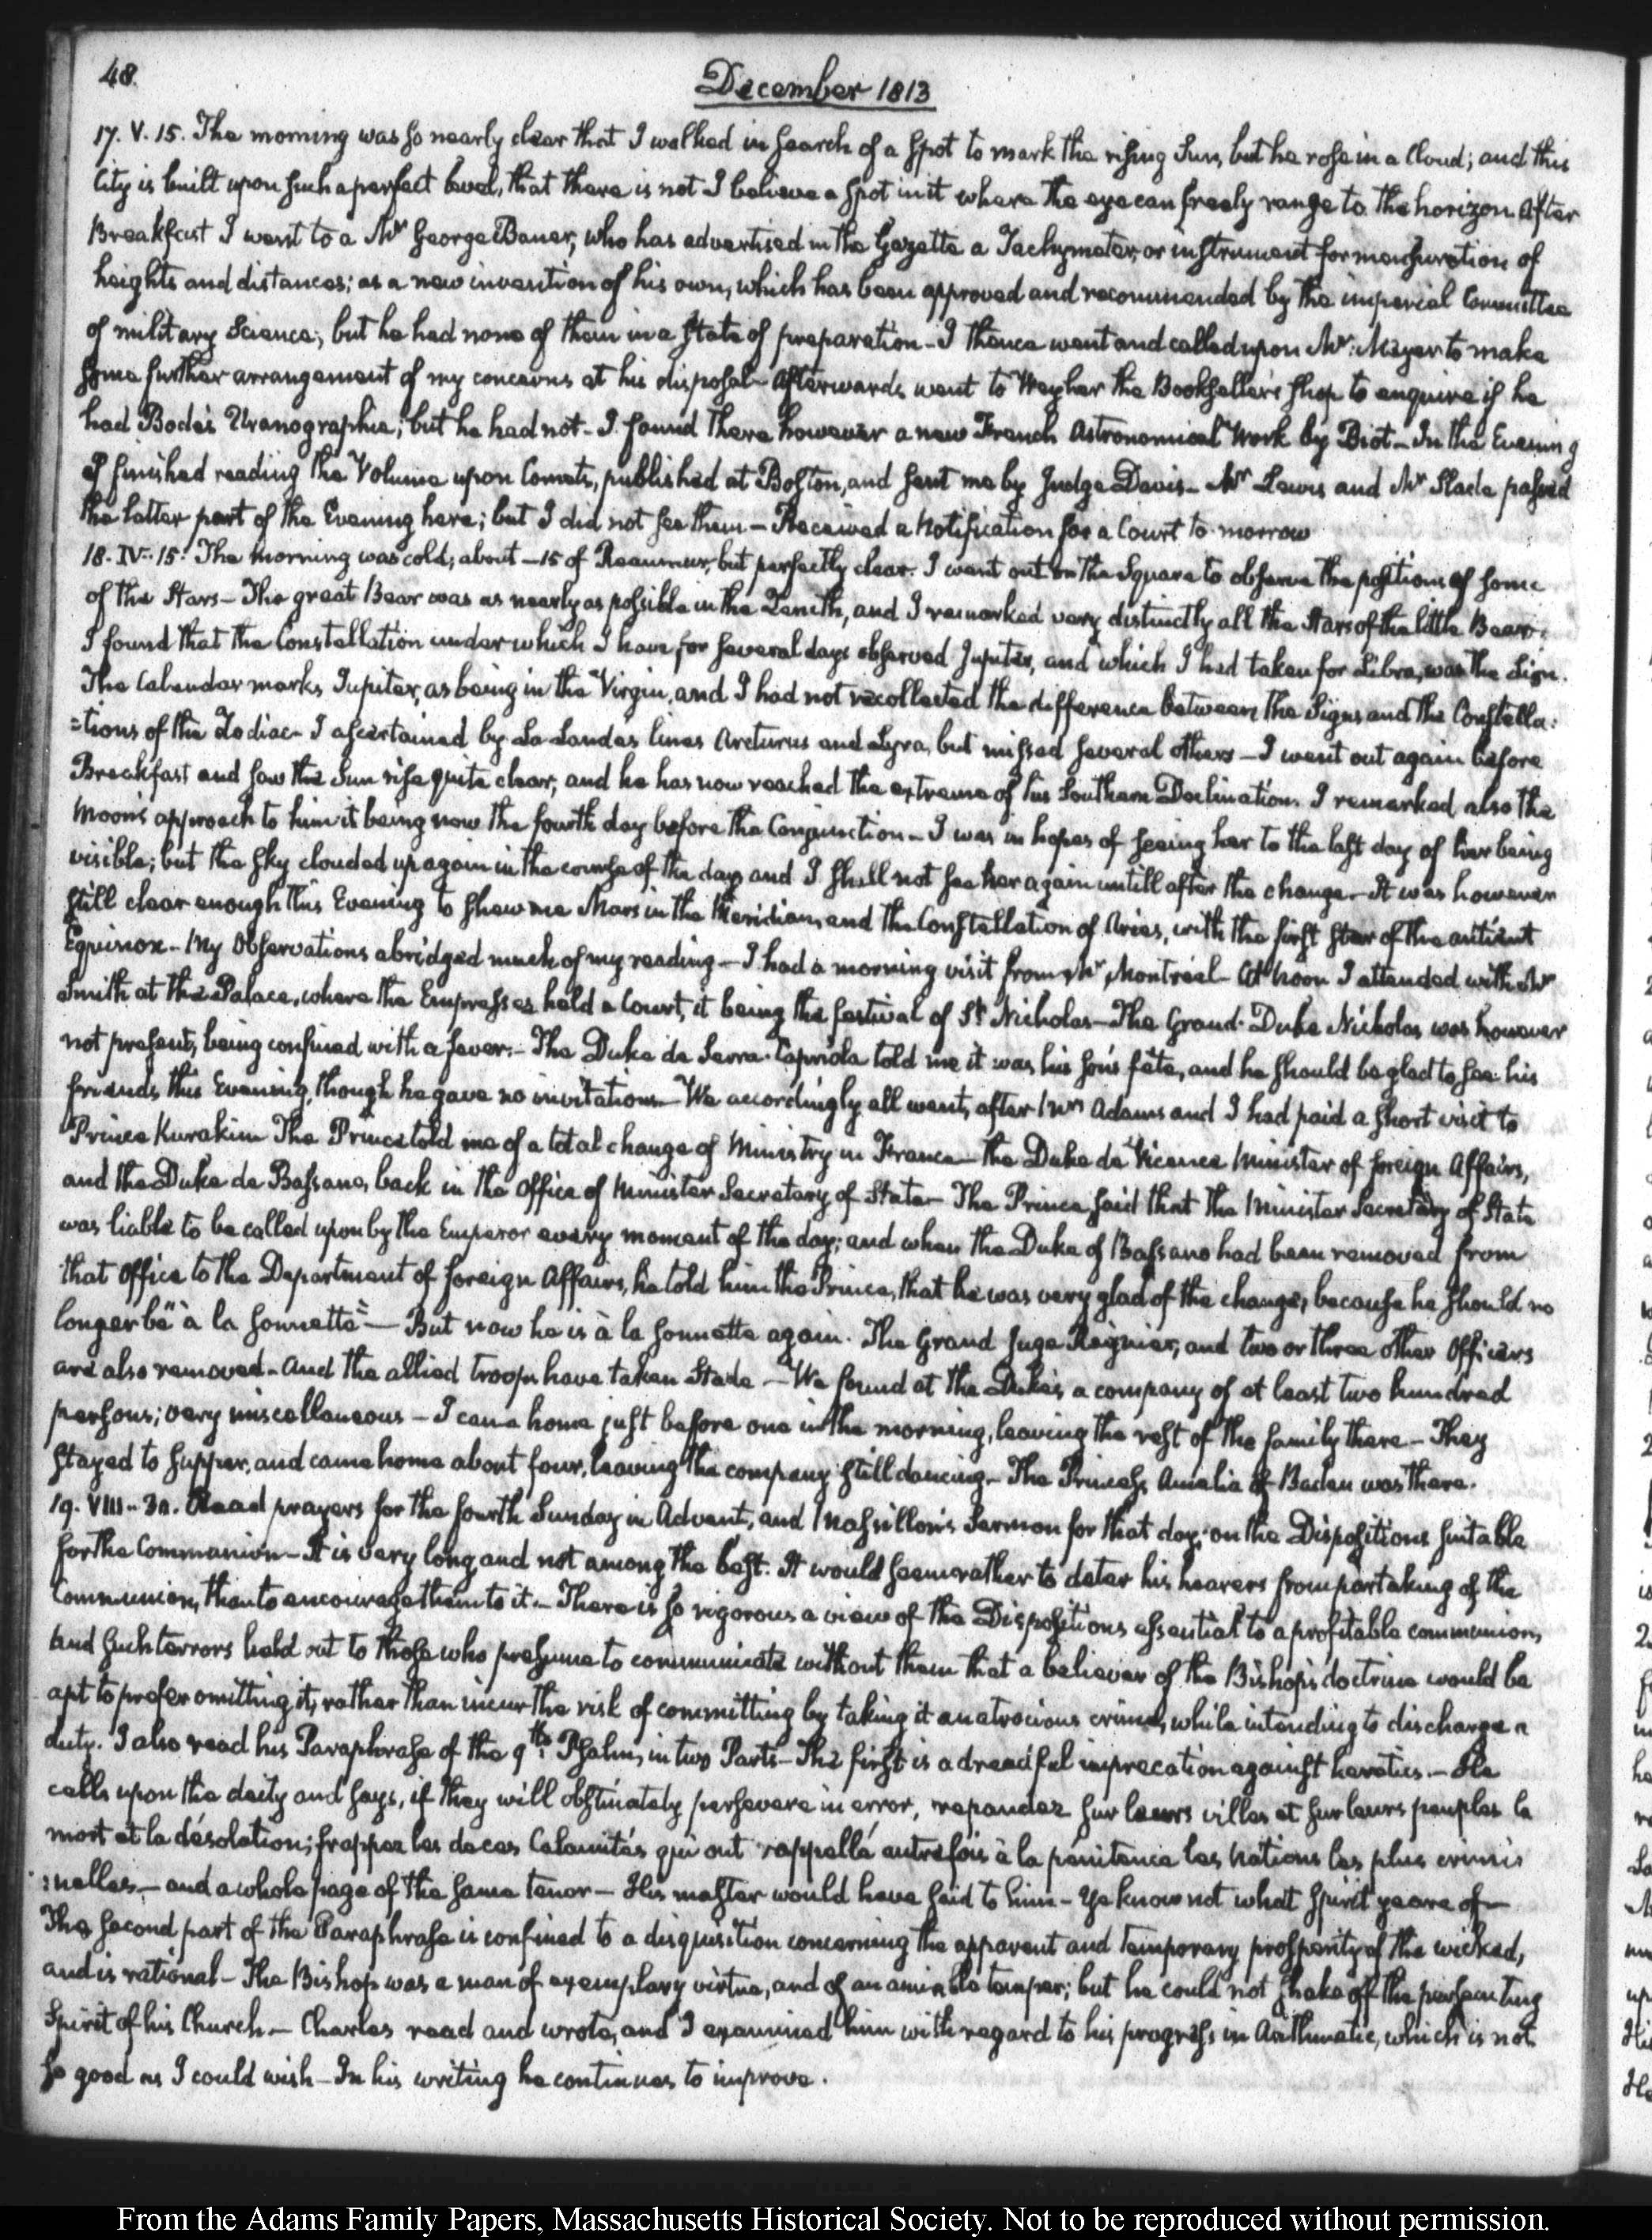 48.
December 1813
17. V. 15. The morning was so nearly clear that I walked in search of a spot to mark the rising Sun, but he rose in a Cloud; and this
City is built upon such a perfect level, that there is not I believe a spot in it where the eye can freely range to the horizon. After
Breakfast I went to a Mr George Bauer, who has advertised in the Gazette a Tachymeter, or instrument for mensuration of
heights and distances; as a new invention of his own, which has been approved and recommended by the imperial Committee
of military Science; but he had none of them in a state of preparation - I thence went and called upon Mr: Meyer to make
some further arrangement of my concerns at his disposal - Afterwards went to Weyher the Bookseller's shop to enquire if he
had Bode's Uranographie; but he had not - I found there however a new French Astronomical Work by Biot - In the Evening
I finished reading the Volume upon Comets, published at Boston, and sent me by Judge Davis - Mr Lewis and Mr Slade passed
the latter part of the Evening here; but I did not see them - Received a Notification for a Court to-morrow
18. IV. 15. The morning was cold, about -15 of Reaumur, but perfectly clear. I went out on the Square to observe the positions of some
of the Stars - The great Bear was as nearly as possible in the Zenith, and I remarked very distinctly all the Stars of the little Bear.
I found that the Constellation under which I have for several days observed Jupiter, and which I had taken for Libra, was the Lion.
The Calendar marks Jupiter, as being in the Virgin, and I had not recollected the difference between the Signs and the Constella:
:tions of the Zodiac - I ascertained by La Lande's lines Arcturus and Lyra, but missed several others - I went out again before
Breakfast and saw the Sun rise quite clear, and he has now reached the extreme of his Southern Declination. I remarked also the
Moon's approach to him it being now the fourth day before the Conjunction - I was in hopes of seeing her to the last day of her being
visible; but the sky clouded up again in the course of the day and I shall not see her again untill after the change - It was however
still clear enough this Evening to shew me Mars in the Meridian, and the Constellation of Aries, with the first star of the antient
Equinox - My Observations abridged much of my reading - I had a morning visit from Mr Montréal - At Noon I attended with Mr
Smith at the Palace, where the Empresses held a Court, it being the festival of St Nicholas - The Grand-Duke Nicholas was however
not present, being confined with a fever. - The Duke de Serra-Capriola told me it was his son's fête, and he should be glad to see his
friends this Evening, though he gave no invitations - We accordingly all went, after Mrs Adams and I had paid a short visit to
Prince Kurakin. The Prince told me of a total change of Ministry in France - the Duke de Vicence Minister of foreign Affairs,
and the Duke de Bassano, back in the Office of Minister Secretary of State - The Prince said that the Minister Secretary of State
was liable to be called upon by the Emperor every moment of the day; and when the Duke of Bassano had been removed from
that Office to the Department of foreign Affairs, he told him the Prince, that he was very glad of the change, because he should no
longer be "à la sonnette" - But now he is à la sonnette again. The Grand Juge Regnier, and two or three other Officers
are also removed - And the allied troops have taken Stade - We found at the Duke's a company of at least two hundred
persons; very miscellaneous - I came home just before one in the morning, leaving the rest of the family there - They
stayed to supper, and came home about four, leaving the company still dancing - The Princess Amalia of Baden was there.
19. VIII. 30. Read prayers for the fourth Sunday in Advent, and Massillon's Sermon for that day; on the Dispositions suitable
for the Communion - It is very long, and not among the best. It would seem rather to deter his hearers from partaking of the
Communion, than to encourage them to it. - There is so rigorous a view of the Dispositions essential to a profitable communion,
and such terrors held out to those who presume to communicate without them that a believer of the Bishop's doctrine would be
apt to prefer omitting it, rather than incur the risk of committing by taking it an atrocious crime, while intending to discharge a
duty. I also read his Paraphrase of the 9th. Psalm, in two Parts - The first is a dreadful imprecation against heretics. - He
calls upon the deity and says, if they will obstinately persevere in error, repandez sur leurs villes et sur leurs peuples la
mort et la désolation; frappez les de ces Calamités qui ont rappellé autrefois à la pénitence les Nations les plus crimi:
:nelles, - and a whole page of the same tenor - His master would have said to him - Ye know not what spirit ye are of -
The second part of the Paraphrase is confined to a disquisition concerning the apparent and temporary prosperity of the wicked,
and is rational - The Bishop was a man of exemplary virtue, and of an amiable temper; but he could not shake off the persecuting
Spirit of his Church - Charles read and wrote, and I examined him with regard to his progress in Arithmetic, which is not
so good as I could wish - In his writing he continues to improve.
From the Adams Family Papers, Massachusetts Historical Society. Not to be reproduced without permission.